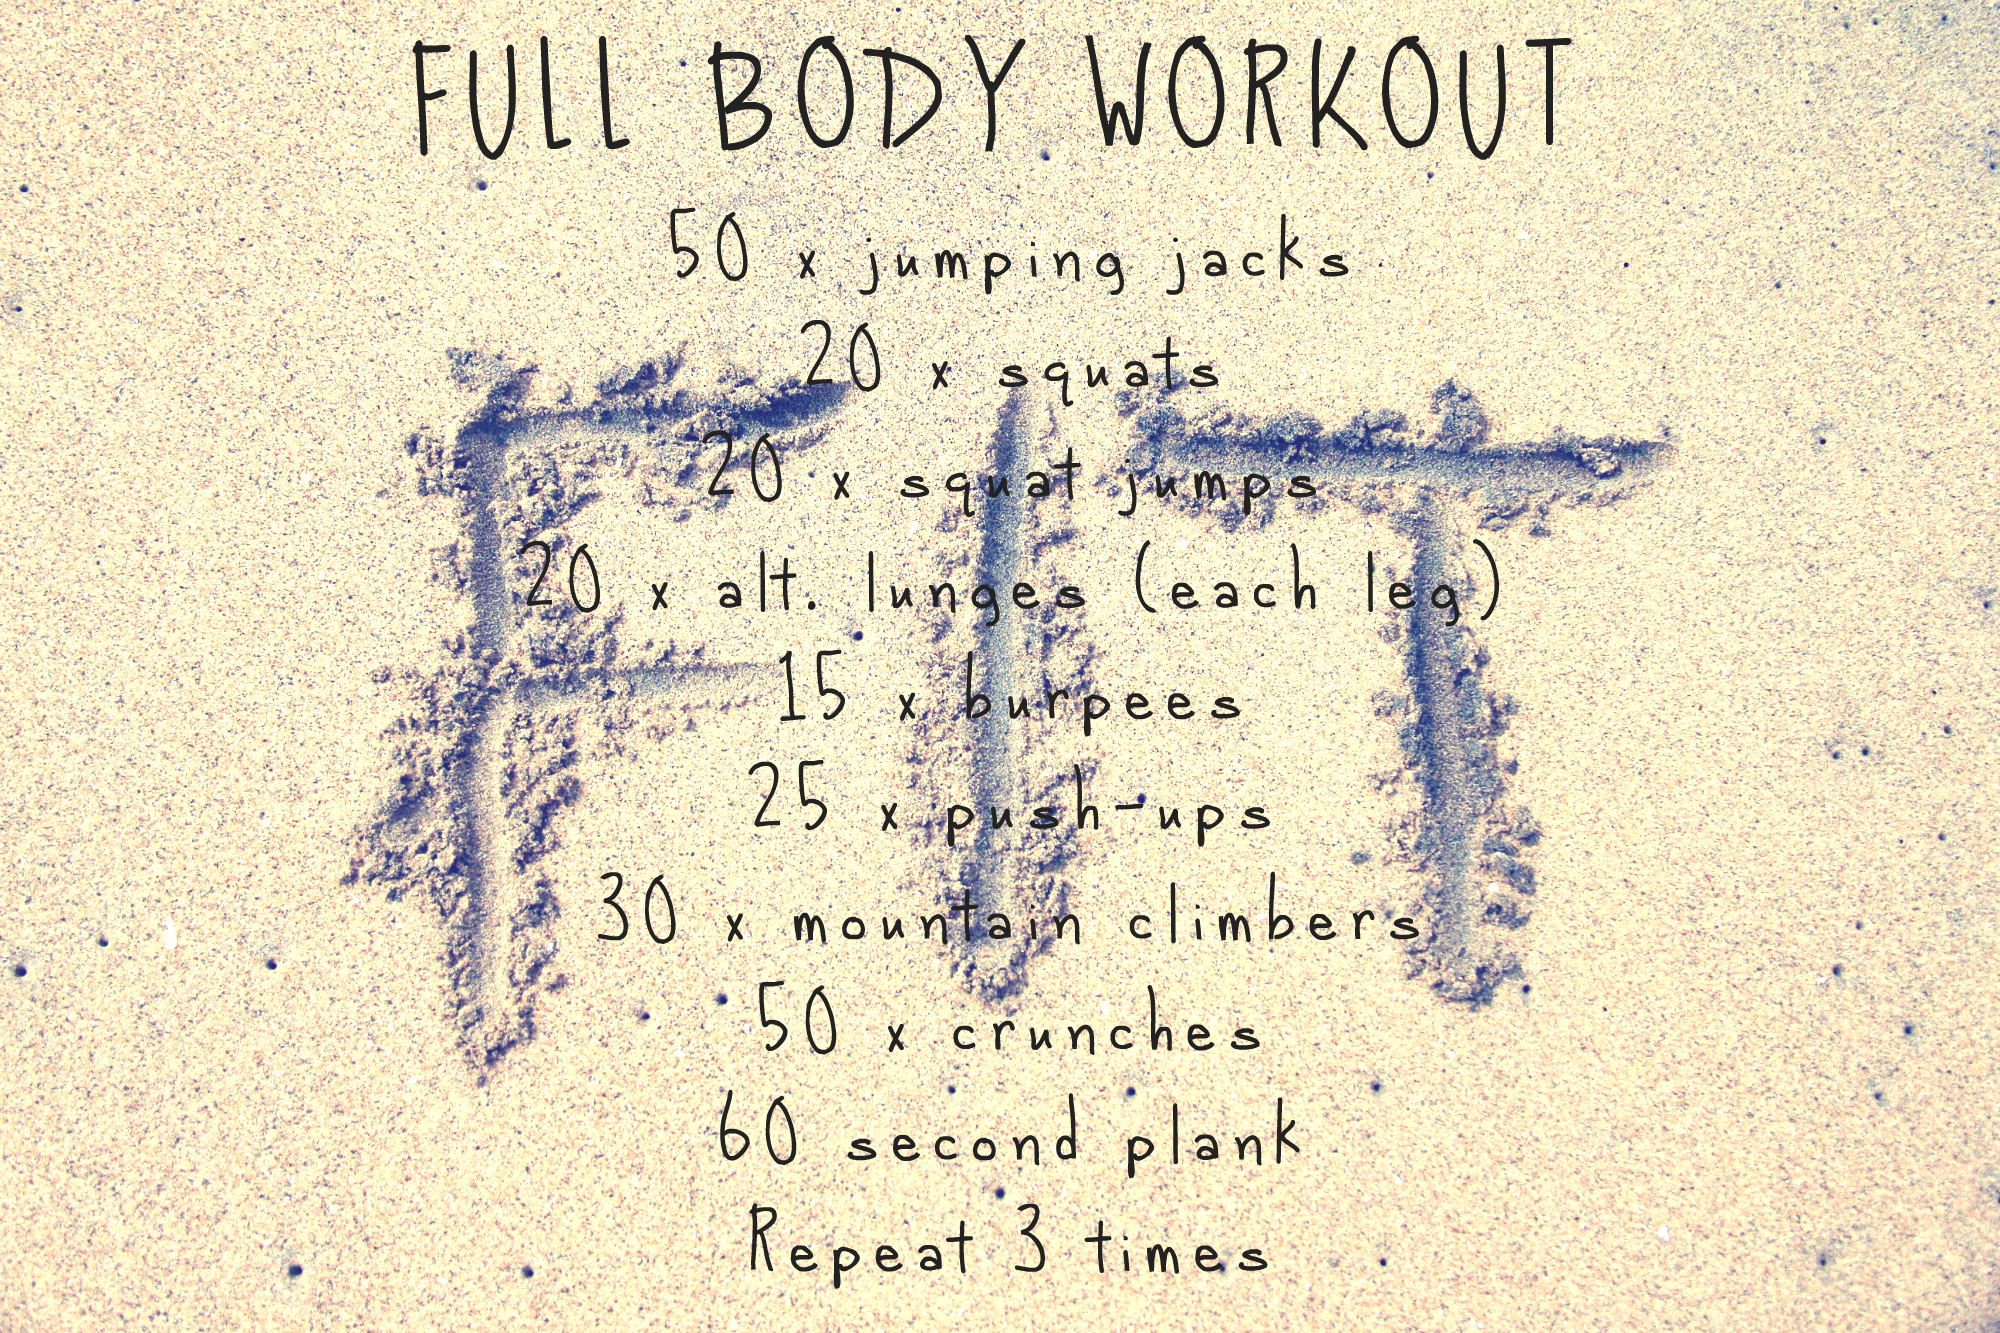 FULL BODY WORKOUT
50 x jumping jacks
20 x squats
20 x squat jumps
20 x alt. lunges (each leg)
15 x burpees
25 x push-ups
30 x mountain climbers
50 x crunches
60 second plank
Repeat 3 times
FIT